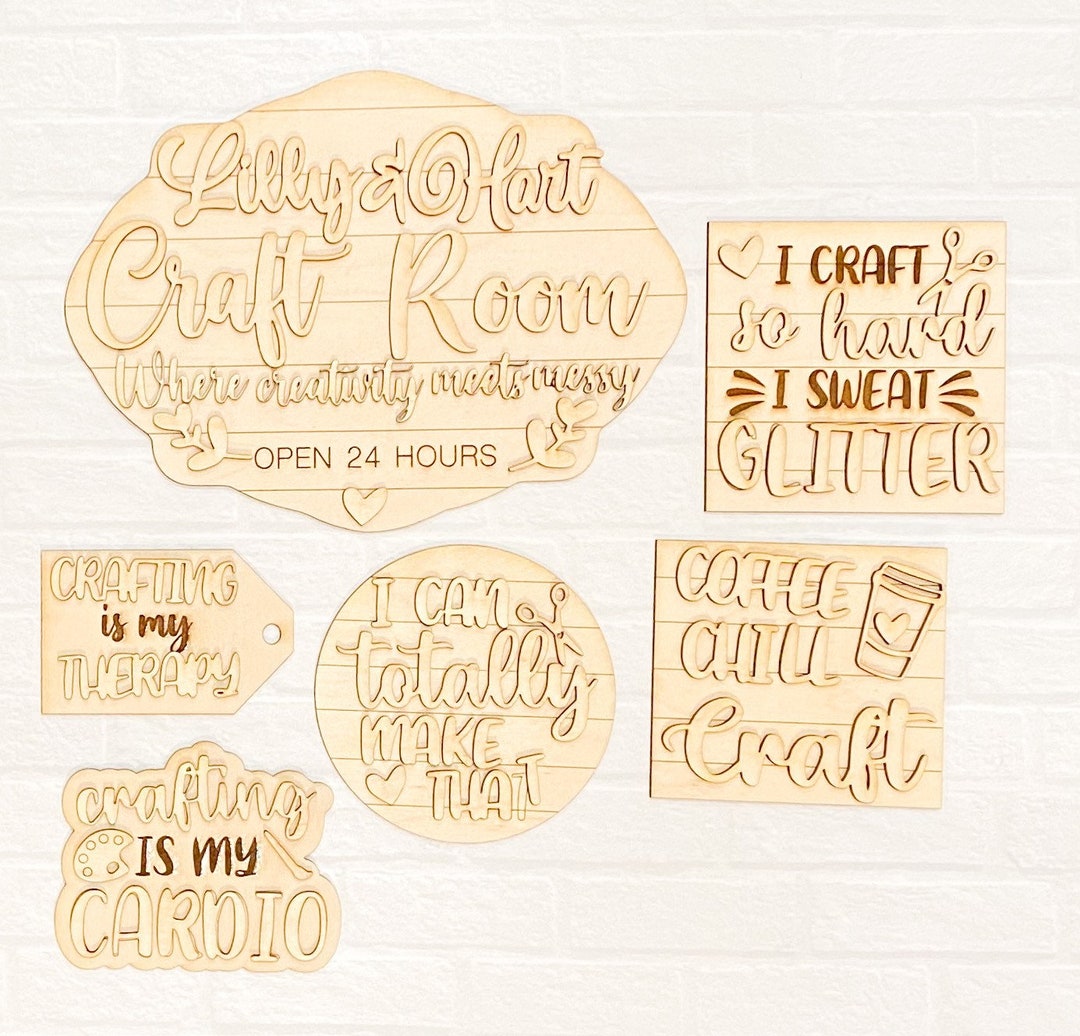 Lilly & Hart
Craft Room
Where creativity meets messy
OPEN 24 HOURS
I CRAFT
so hard
I SWEAT
GLITTER
CRAFTING
is my
THERAPY
I CAN
totally
MAKE
THAT
COFFEE
CHILL
Craft
crafting
IS MY
CARDIO